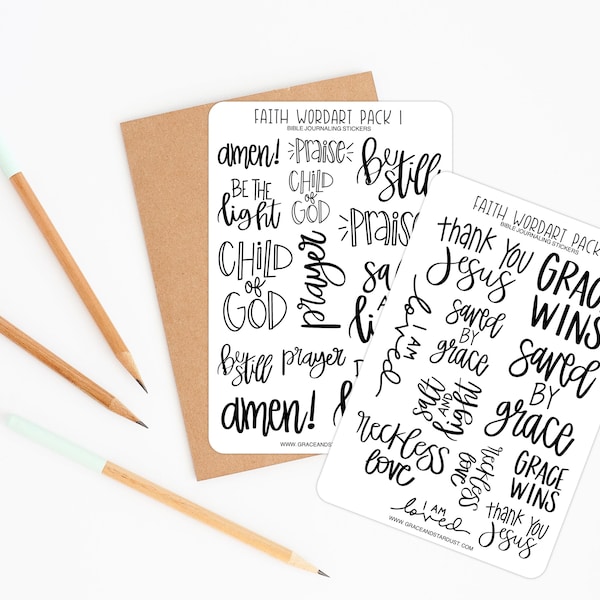 FAITH WORDART PACK 1
BIBLE JOURNALING STICKERS
amen!
praise
be still
BE THE
light
CHILD
of
GOD
praise
CHILD
of
GOD
prayer
be still
prayer
amen!
WWW.GRACEANDSTARDUST.COM
FAITH WORDART PACK
BIBLE JOURNALING STICKERS
thank YOU
Jesus
GRACE
WINS
I AM
loved
saved
BY
grace
saved
BY
grace
salt
AND
light
reckless
love
reckless
love
GRACE
WINS
I AM
loved
thank YOU
Jesus
WWW.GRACEANDSTARDUST.COM